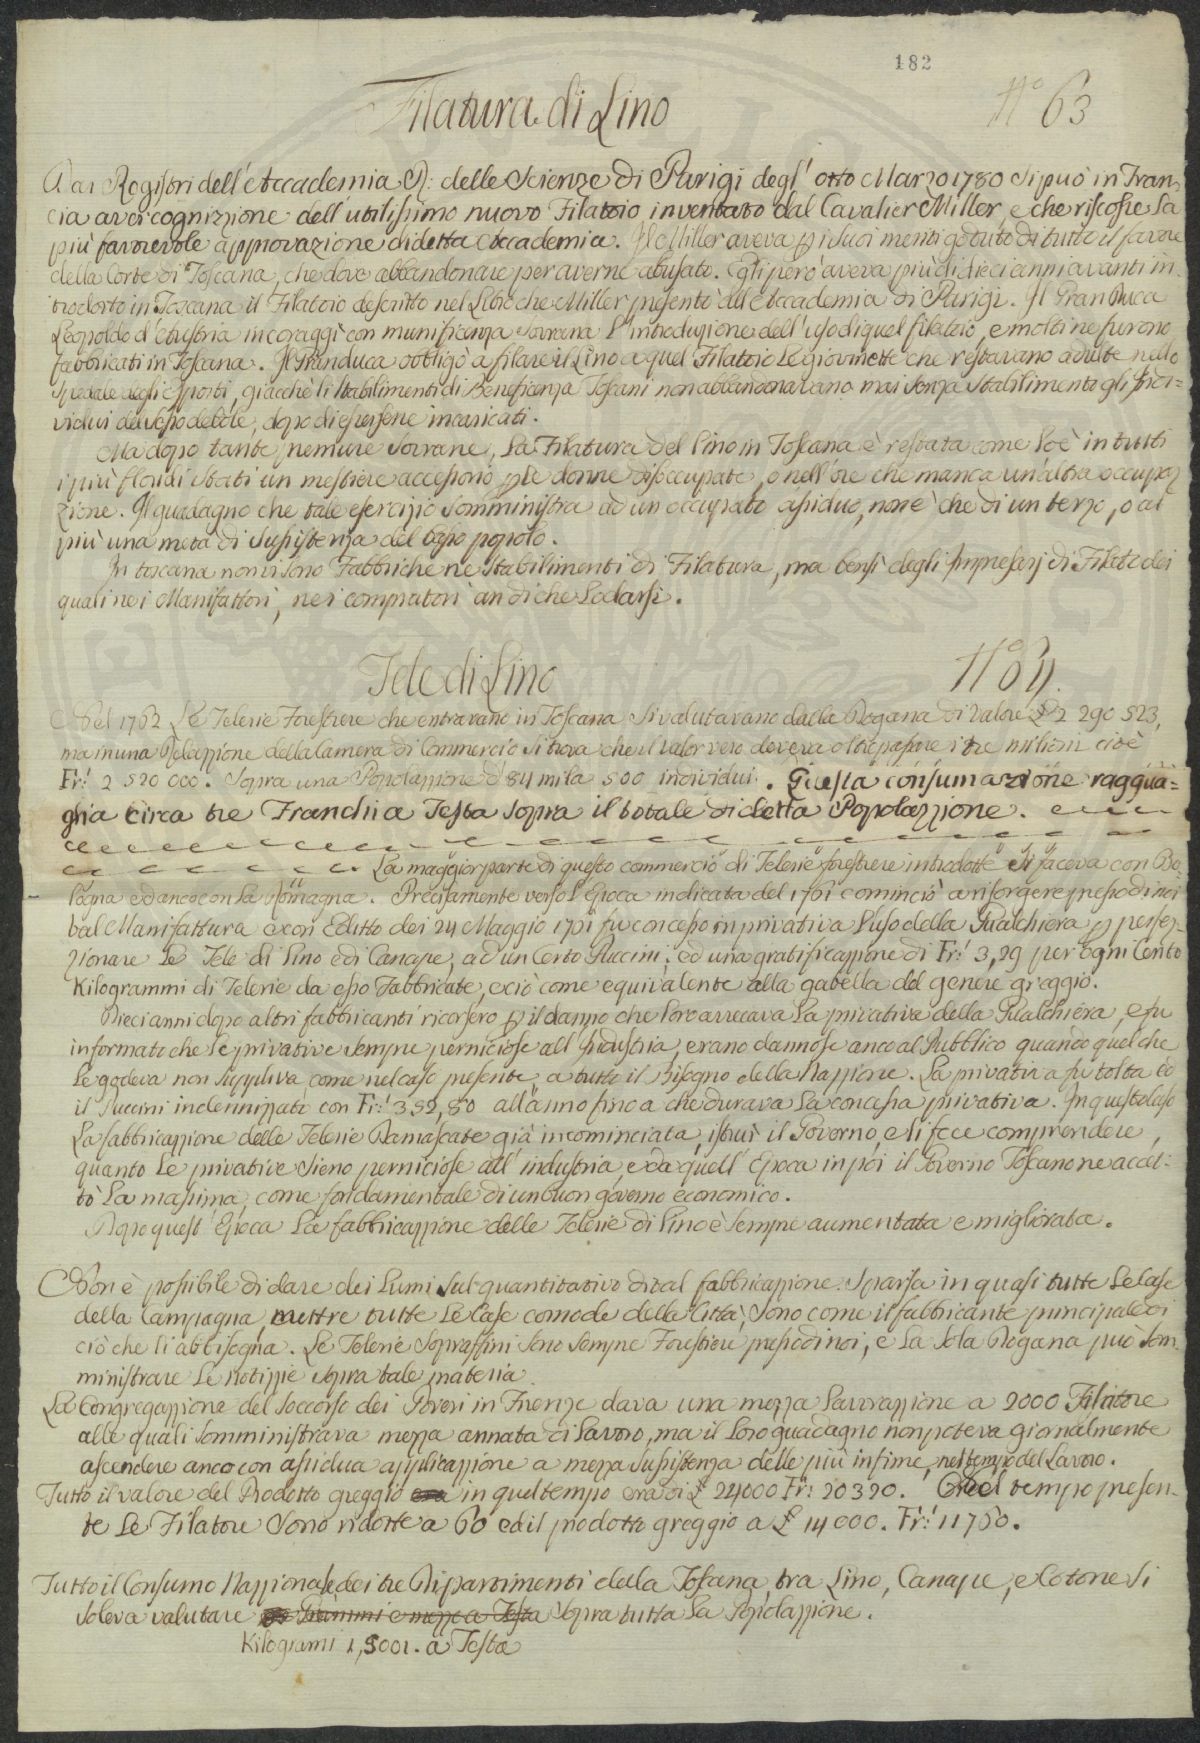 182
Filatura di Lino
N.° 63
Dai Registri dell'Accademia R: delle Scienze di Parigi degl'otto Marzo 1780 si può in Fran=
cia aver cognizione dell'utilissimo nuovo Filatoio, inventato dal Cavalier Miller, e che riscosse la
più favorevole approvazione di detta Accademia. Il Miller aveva p i suoi meriti goduto di tutto il favore
della Corte di Toscana, che dove abbandonare per averne abusato. Egli però aveva più di dieci anni avanti in-
trodotto in Toscana il Filatoio descritto nel Libro che Miller presentò all'Accademia di Parigi. Il Gran Duca
Leopoldo d'Austria incoraggì con munificenza Sovrana l'introduzione dell'uso di quel filatoio, e molti ne furono
fabbricati in Toscana. Il Granduca obbligò a filare il Lino a quel Filatoio le giovinette che restavano adulte nello
Spedale degli Esposti, giacchè li Stabilimenti di Beneficenza Toscani non abbandonavano mai senza stabilimento gli Indi=
vidui del sesso debole, dopo di essersene incaricati.
Ma dopo tante premure Sovrane, la Filatura del Lino in Toscana è restata come lo è in tutti
i più floridi Stati un mestiere accessorio p le donne disoccupate, o nell'ore che manca un'altra occupaz=
zione. Il guadagno che tale esercizio somministra ad un occupato assiduo, non è che di un terzo, o al
più una metà di sussistenza del basso popolo.
In toscana non vi sono Fabbriche ne stabilimenti di Filatura, ma bensì degli Impresarj di Filati dei
quali ne i Manifattori, ne i compratori an di che Lodarsi.
Tele di Lino
N.° 64.
Nel 1762 Le Telerie Forestiere che entravano in Toscana si valutavano dalla Dogana di valore £ 2 290 523,
ma in una Relazione della Camera di Commercio si trova che il valor vero doveva oltrepassare i tre milioni cioè
Fr: 2 520 000. Sopra una Popolazzione d' 84 mila 500 individui. Questa consumazione raggua=
glia circa tre Franchi a Testa sopra il totale di detta Popolazzione.
La maggior parte di questo commercio di Telerie forestiere introdotte si faceva con Bo=
logna ed anco con la Romagna. Precisamente verso l'Epoca indicata del 1761 cominciò a risorgere presso di noi
tal Manifattura e con Editto dei 24 Maggio 1761 fu concesso in privativa l'uso della Gualchiera p perfez=
zionare Le Tele di Lino e di Canape, ad un Certo Puccini, ed una gratificazzione di Fr: 3,29 per ogni Cento
Kilogrammi di Telerie da esso Fabbricate, e ciò come equivalente alla gabella del genere greggio.
Dieci anni dopo altri fabbricanti ricorsero p il danno che loro arrecava la privativa della Gualchiera, e fu
informato che le privative sempre perniciose all'Industria, erano dannose anco al Pubblico quando quel che
le godeva non suppliva come nel caso presente, a tutto il bisogno della Nazzione. La privativa fu tolta ed
il Puccini indennizzato con Fr: 352,80 all'anno fino a che durava la concessa privativa. In questo caso
la fabbricazzione delle Telerie Damascate già incominciata, istruì il Governo, e li fece comprendere,
quanto le privative sieno perniciose all'industria, e da quell'Epoca in poi il Governo Toscano ne adot=
tò la massima, come fondamentale di un buon governo economico.
Dopo quest'Epoca la fabbricazzione delle Telerie di Lino è sempre aumentata e migliorata.
Non è possibile di dare dei Lumi sul quantitativo di tal fabbricazzione. Sparsa in quasi tutte le Case
della Campagna, mentre tutte le Case comode della Città, sono come il fabbricante principale di
ciò che li abbisogna. Le Telerie Sopraffini sono sempre Forestiere presso di noi, e la sola Dogana può som=
ministrare le notizzie sopra tale materia.
La Congregazzione del Soccorso dei Poveri in Firenze dava una mezza Lavorazzione a 2000 Filatore
alle quali somministrava mezza annata di Lavoro, ma il loro guadagno non poteva giornalmente
ascendere anco con assidua applicazzione a mezza sussistenza delle più infime, nel tempo del Lavoro.
Tutto il valore del Prodotto greggio era in quel tempo era di £ 24000 Fr: 20320. Nel tempo presen=
te le Filatore sono ridotte a 60 ed il prodotto greggio a £ 14000. Fr: 11760.
Tutto il Consumo Nazzionale dei tre Dipartimenti della Toscana, tra Lino, Canape, e Cotone si
soleva valutare Grammi e mezzo a Testa sopra tutta la Popolazzione.
Kilogrami 1,5001. a Testa